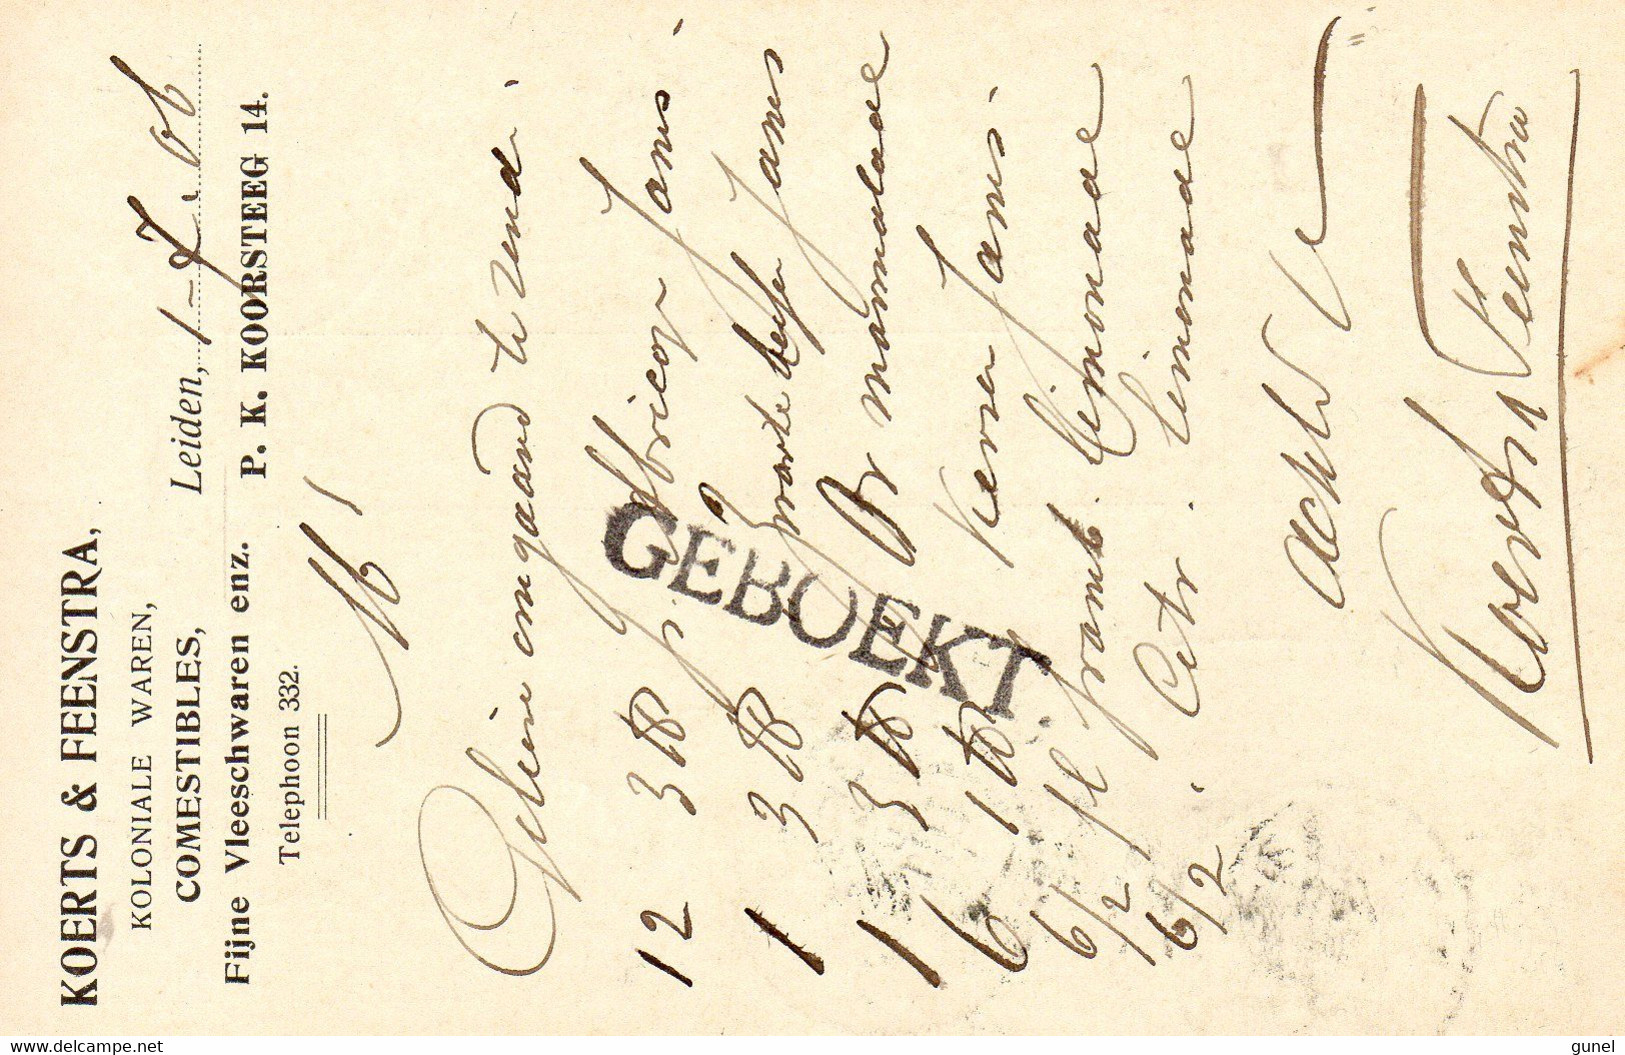 KOERTS & FEENSTRA,
KOLONIALE WAREN,
COMESTIBLES,
Fijne Vleeschwaren enz.
Telephoon 332.
Leiden, 1-7-06
P. K. KOORSTEEG 14.
M
Gelieve omgaand te zend.
12 3 tb Abricoze Jams
1 3 tb groote Jams
1 3 tb Or marmalade
6 1 tb Kersen Jams
6/2 fl framb. Limonade
6/2 Citr. Limonade
GEBOEKT
Acht V
Koerts & Feenstra
www.delcampe.net
gunel